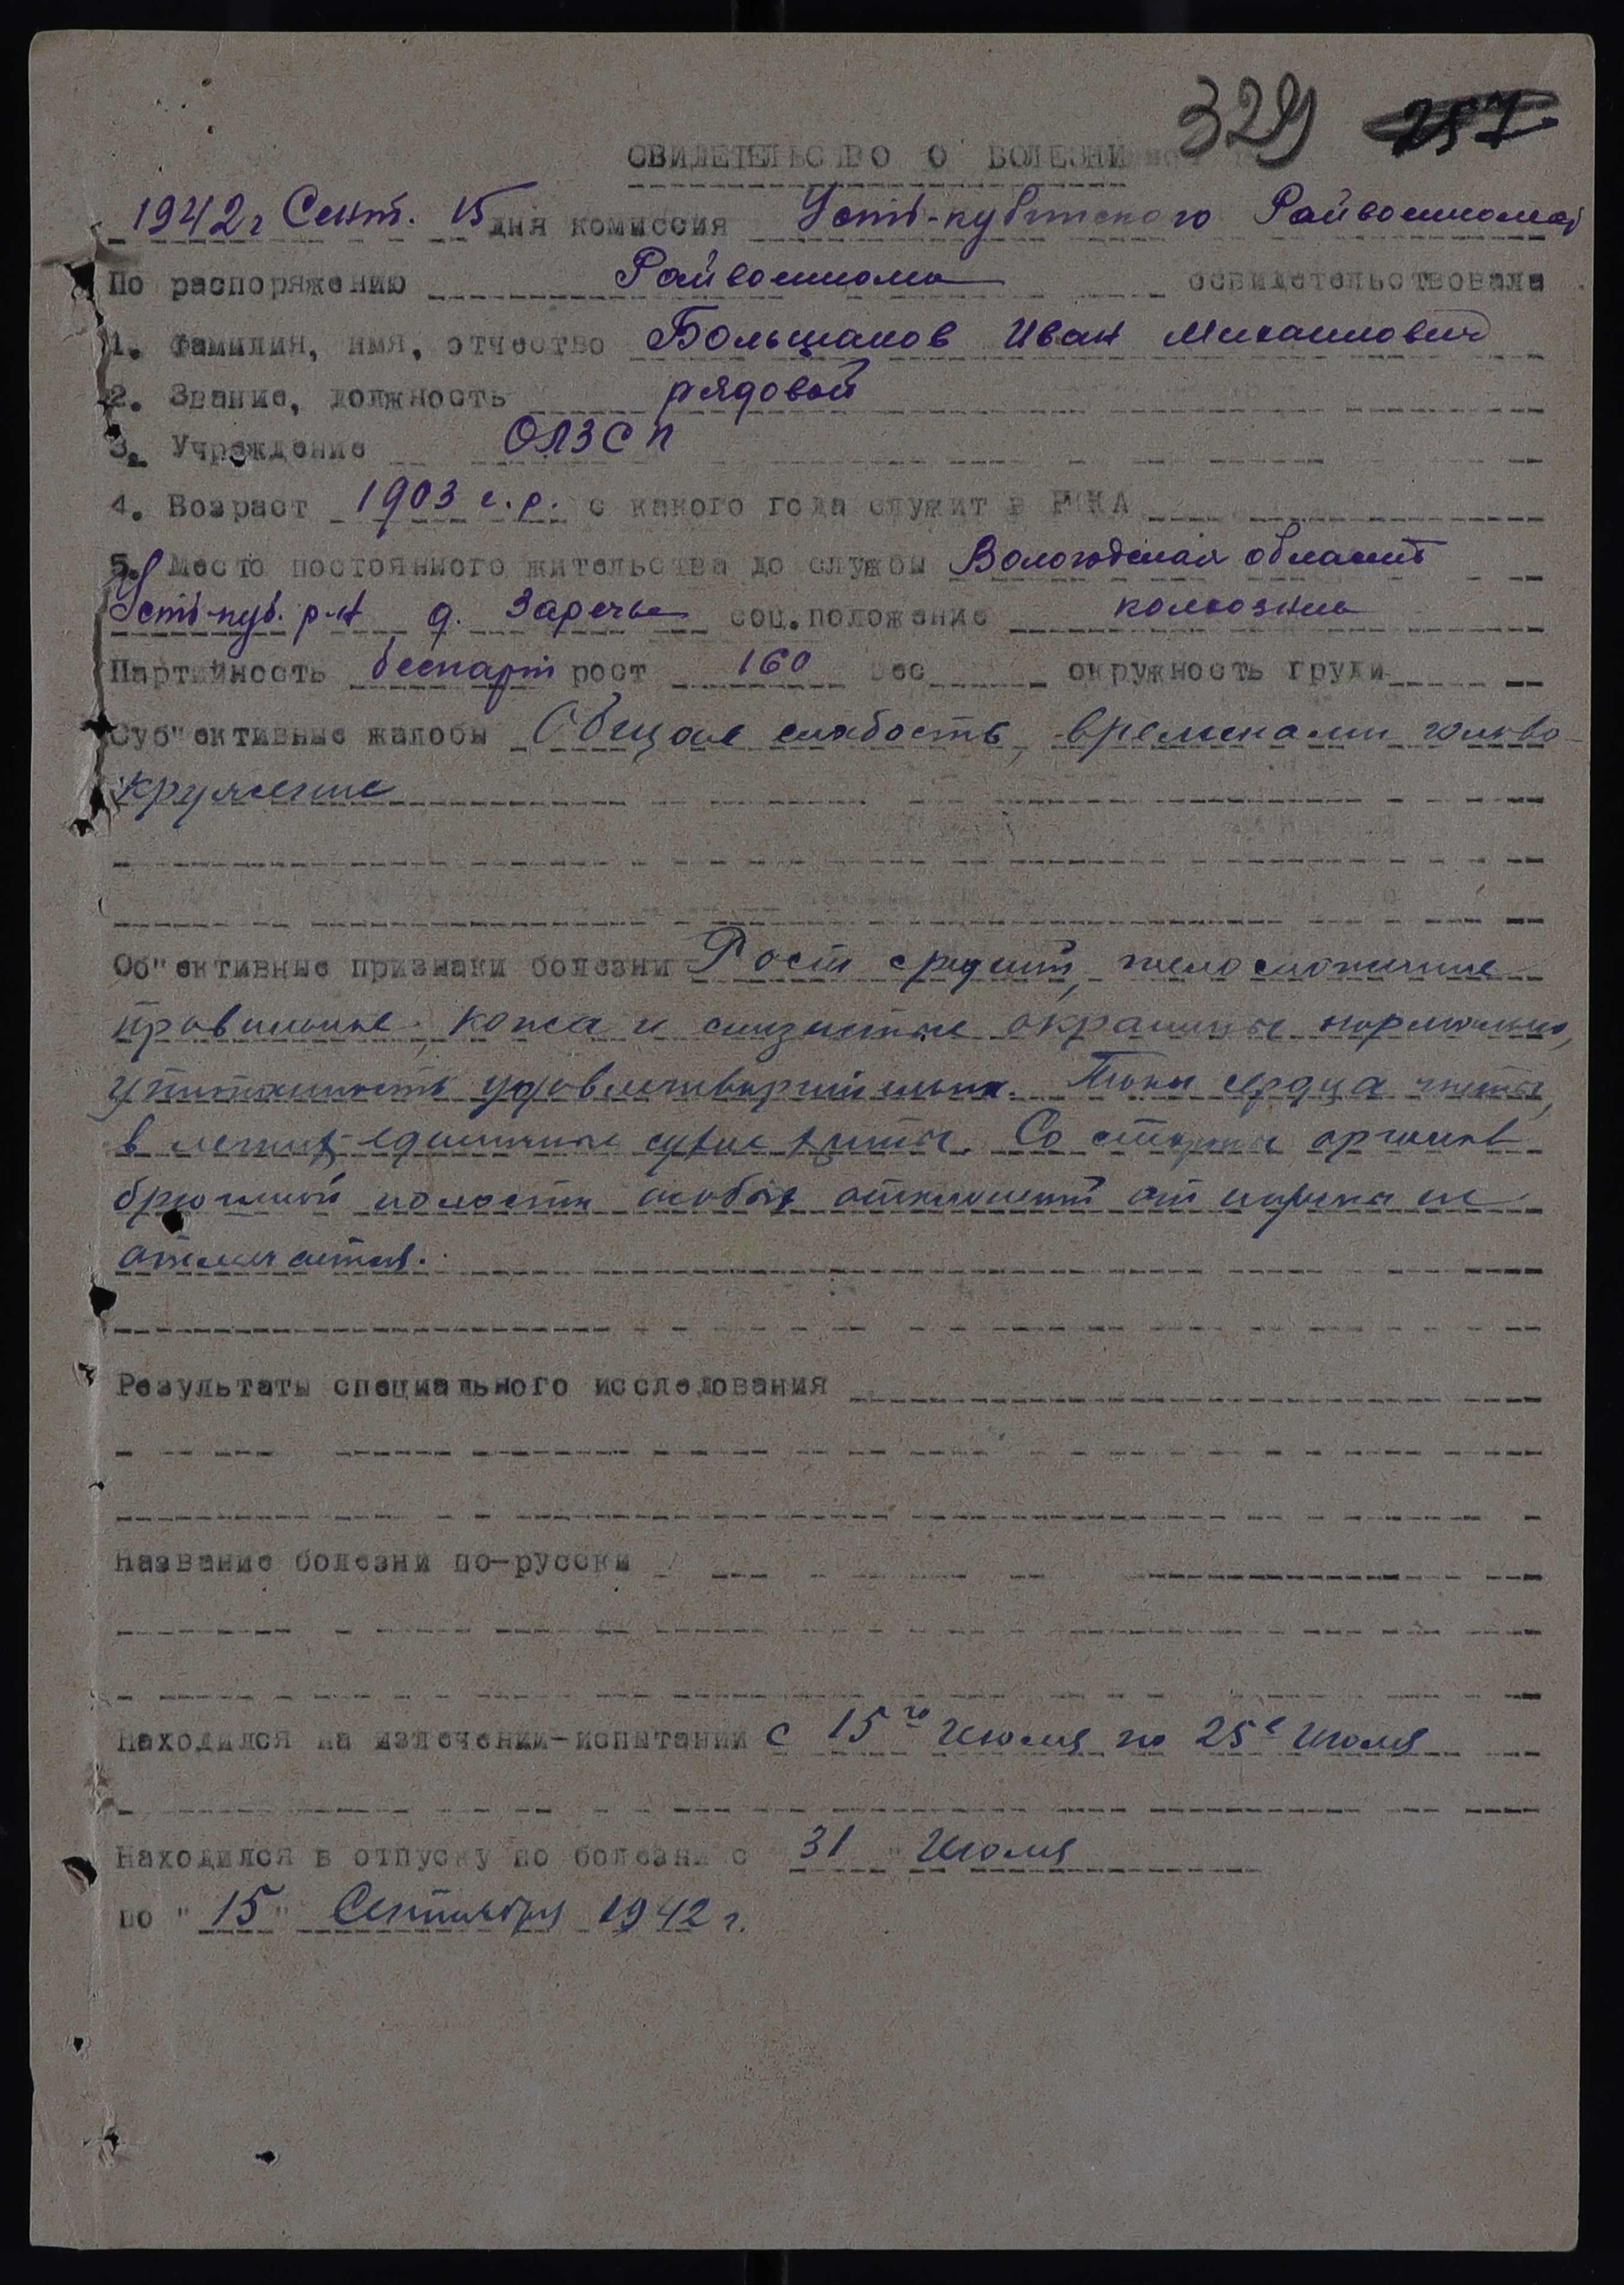 329 257
СВИДЕТЕЛЬСТВО О БОЛЕЗНИ
1942 г Сент. 15 дня комиссия Усть-кубинского Райвоенкомат
По распоряжению Райвоенкома освидетельствовала
1. Фамилия, имя, отчество Большаков Иван Михаилович
2. Звание, должность рядовой
3. Учреждение ОЛЗСП
4. Возраст 1903 г.р. с какого года служит в РККА
5. Место постоянного жительства до службы Вологодская область
Усть-куб. р-н д. Заречье соц.положение колхозник
Партийность беспарт рост 160 вес окружность груди
Суб"ективные жалобы Общая слабость, временами голово-
кружение
Об"ективные признаки болезни Рост средний, телосложение
правильное, кожа и слизистые окрашены нормально,
упитанность удовлетворительная. Тоны сердца чисты,
в легких единичные сухие хрипы. Со стороны органов
брюшной полости особых отклонений от нормы не
отмечается.
Результаты специального исследования
Название болезни по-русски
Находился на излечении-испытании с 15го Июля по 25е Июля
Находился в отпуску по болезни с 31 Июля
по "15" Сентября 1942 г.